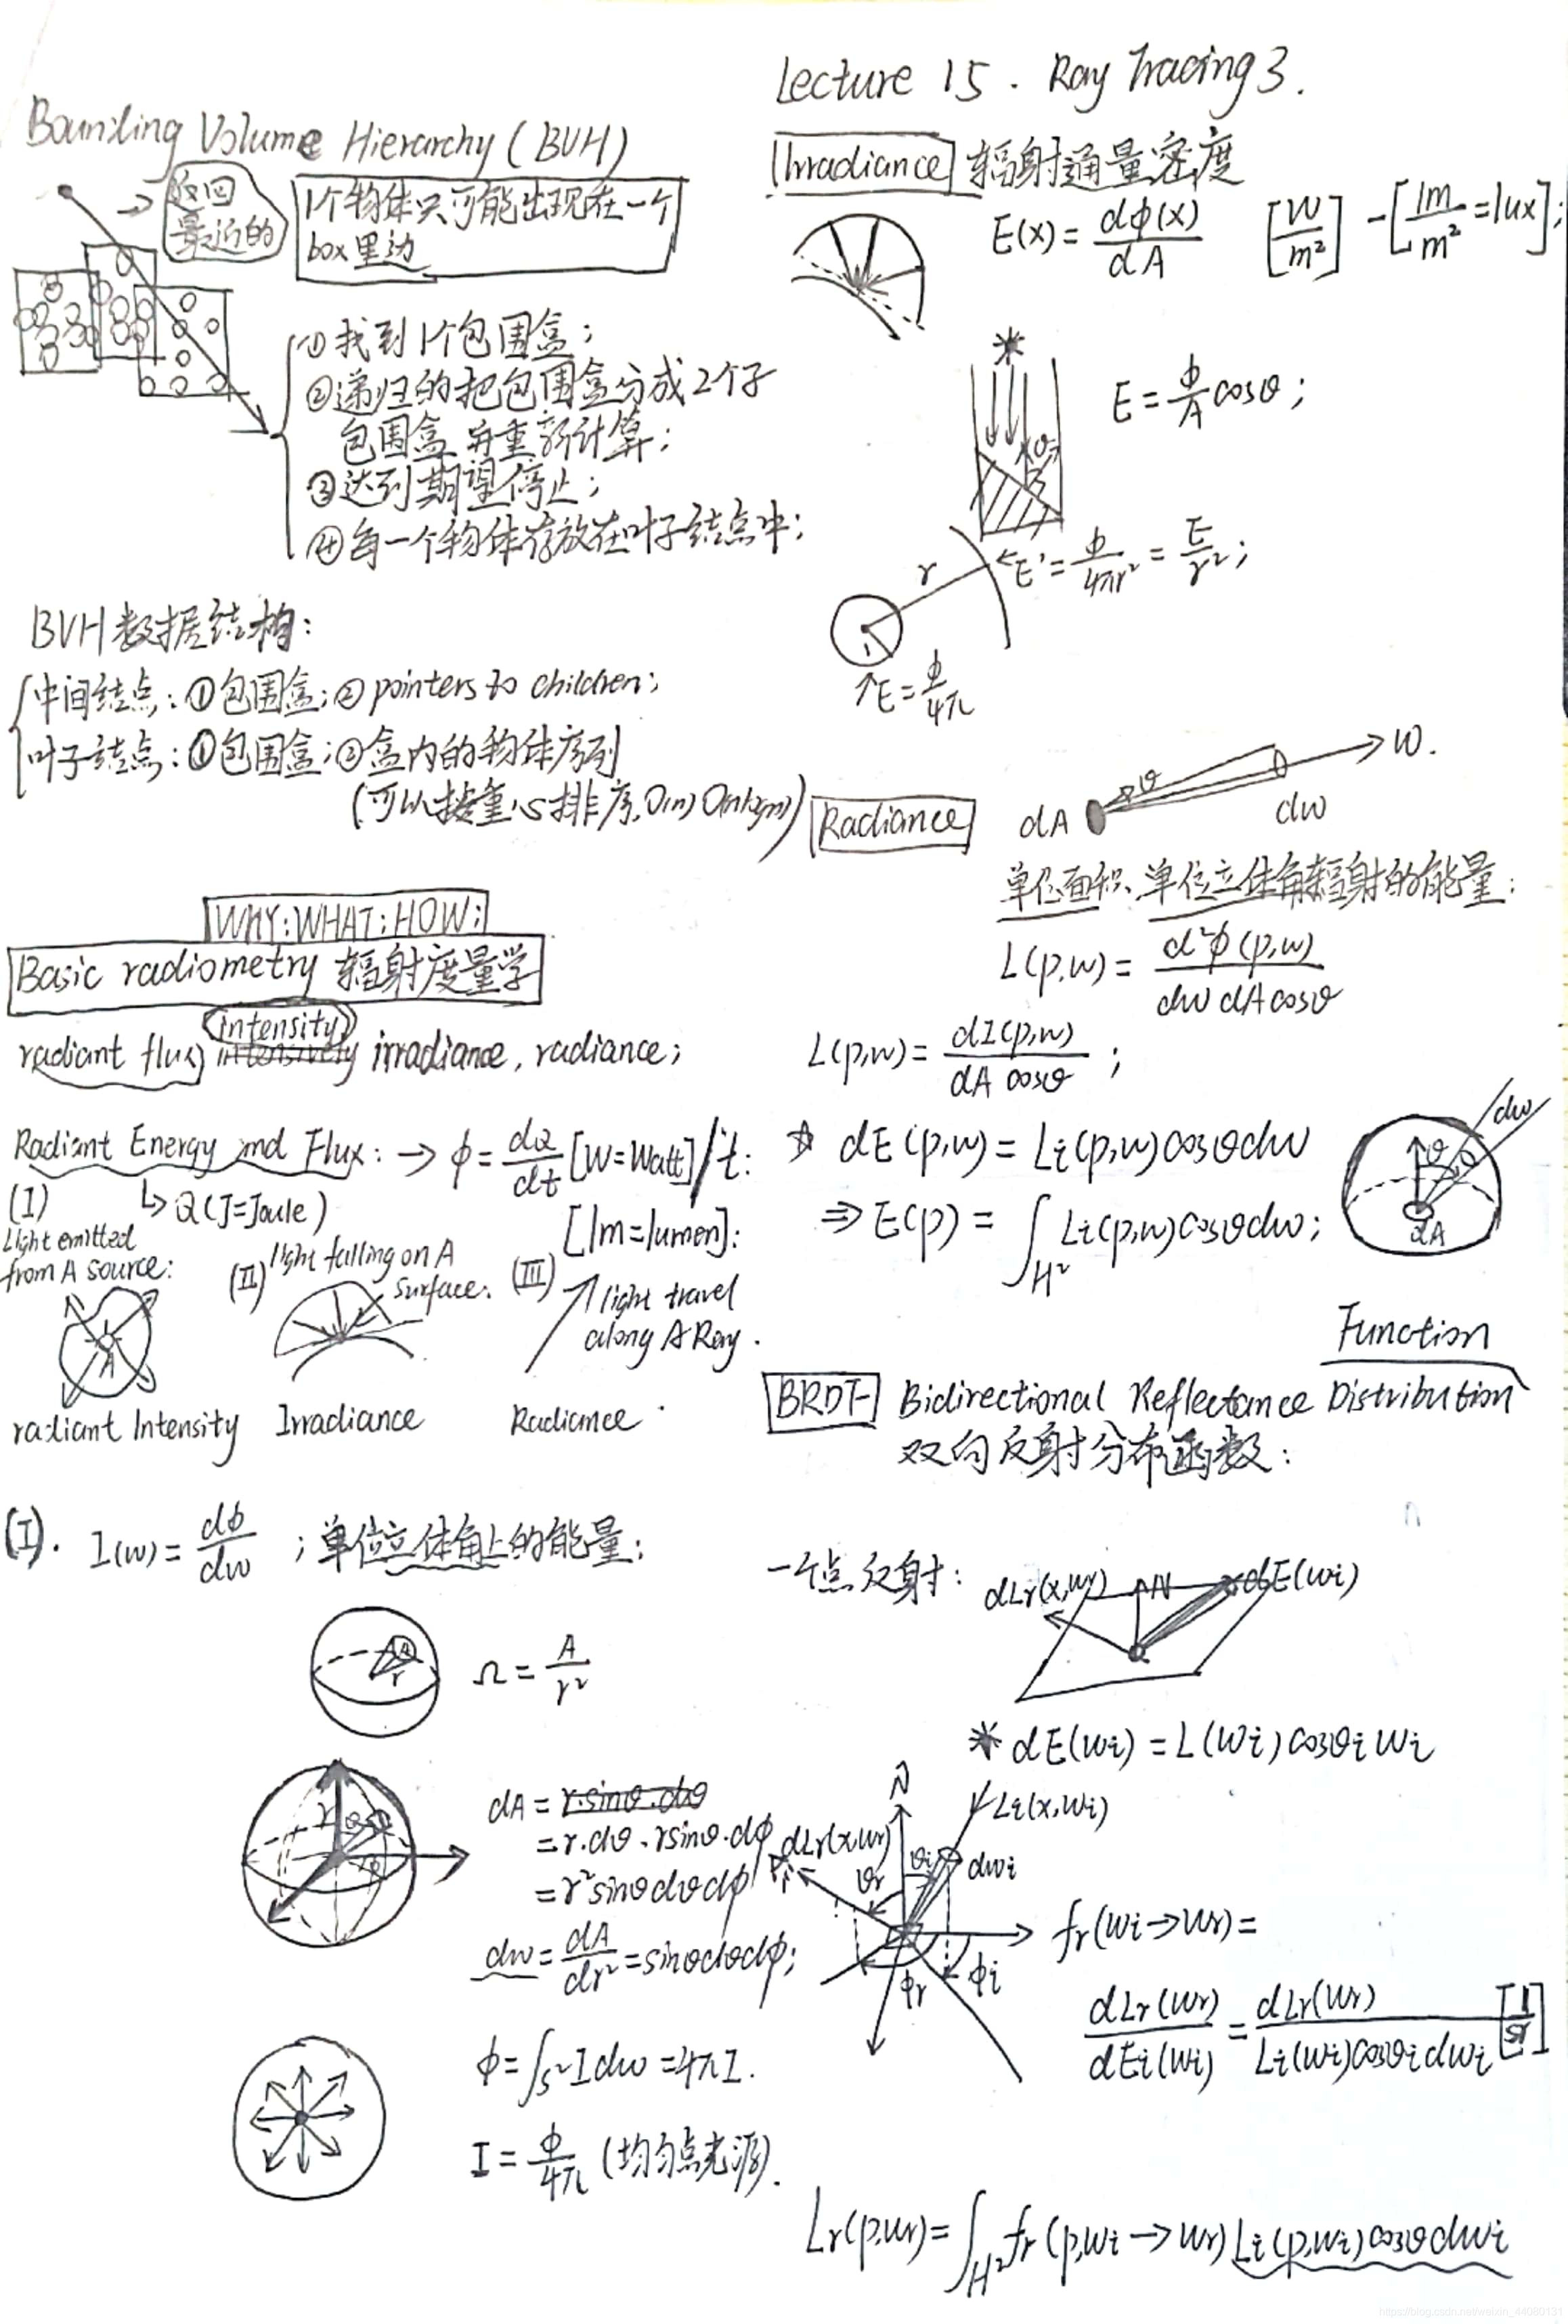 Bounding Volume Hierarchy (BVH)
返回
最近的
1个物体只可能出现在一个
box里边
①找到1个包围盒;
②递归的把包围盒分成2个子
包围盒并重新计算;
③达到期望停止;
④每一个物体存放在叶子结点中;
BVH数据结构:
中间结点:①包围盒;② pointers to children;
叶子结点:①包围盒;②盒内的物体序列
(可以按重心排序, O(n) O(nlogn))
WHY:WHAT:HOW:
Basic radiometry 辐射度量学
intensity
radiant flux, irradiance, radiance;
Radiant Energy and Flux: → ϕ = dQ/dt [W=Watt]/t:
↳ Q (J=Joule)
[lm=lumen]:
(I)
Light emitted
from A source:
A
radiant Intensity
(II) light falling on A
surface:
Irradiance
(III)
light travel
along A Ray.
Radiance
(I). I(w) = dϕ/dw ; 单位立体角上的能量;
A
r
Ω = A/r²
r θ
ϕ
dA = r·sinθ·dθ
= r·dθ·rsinθ·dϕ
= r²sinθdθdϕ
dw = dA/dr² = sinθdθdϕ;
ϕ = ∫S² I dw = 4πI.
I = ϕ/4π (均匀点光源).
Lecture 15. Ray Tracing 3.
Irradiance 辐射通量密度
E(x) = dϕ(x)/dA [W/m²] - [lm/m² = lux];
θ
E = ϕ/A cosθ;
r
←E' = ϕ/4πr² = E/r²;
1
↑E = ϕ/4π
Radiance
θ
w.
dA
dw
单位面积、单位立体角辐射的能量:
L(p,w) = d²ϕ(p,w)/dw dA cosθ
L(p,w) = dI(p,w)/dA cosθ ;
☆ dE(p,w) = Li(p,w)cosθdw
⇒ E(p) = ∫H² Li(p,w)cosθdw;
dw
θ
dA
Function
BRDF Bidirectional Reflectance Distribution
双向反射分布函数:
一个点反射:
dLr(x,wr) N dE(wi)
* dE(wi) = L(wi)cosθi wi
N
Li(x,wi)
dLr(x,wr)
θr θi dwi
ϕr ϕi
fr(wi→wr) =
dLr(wr)/dEi(wi) = dLr(wr)/Li(wi)cosθidwi [1/sr]
Lr(p,wr) = ∫H² fr(p,wi→wr) Li(p,wi)cosθdwi